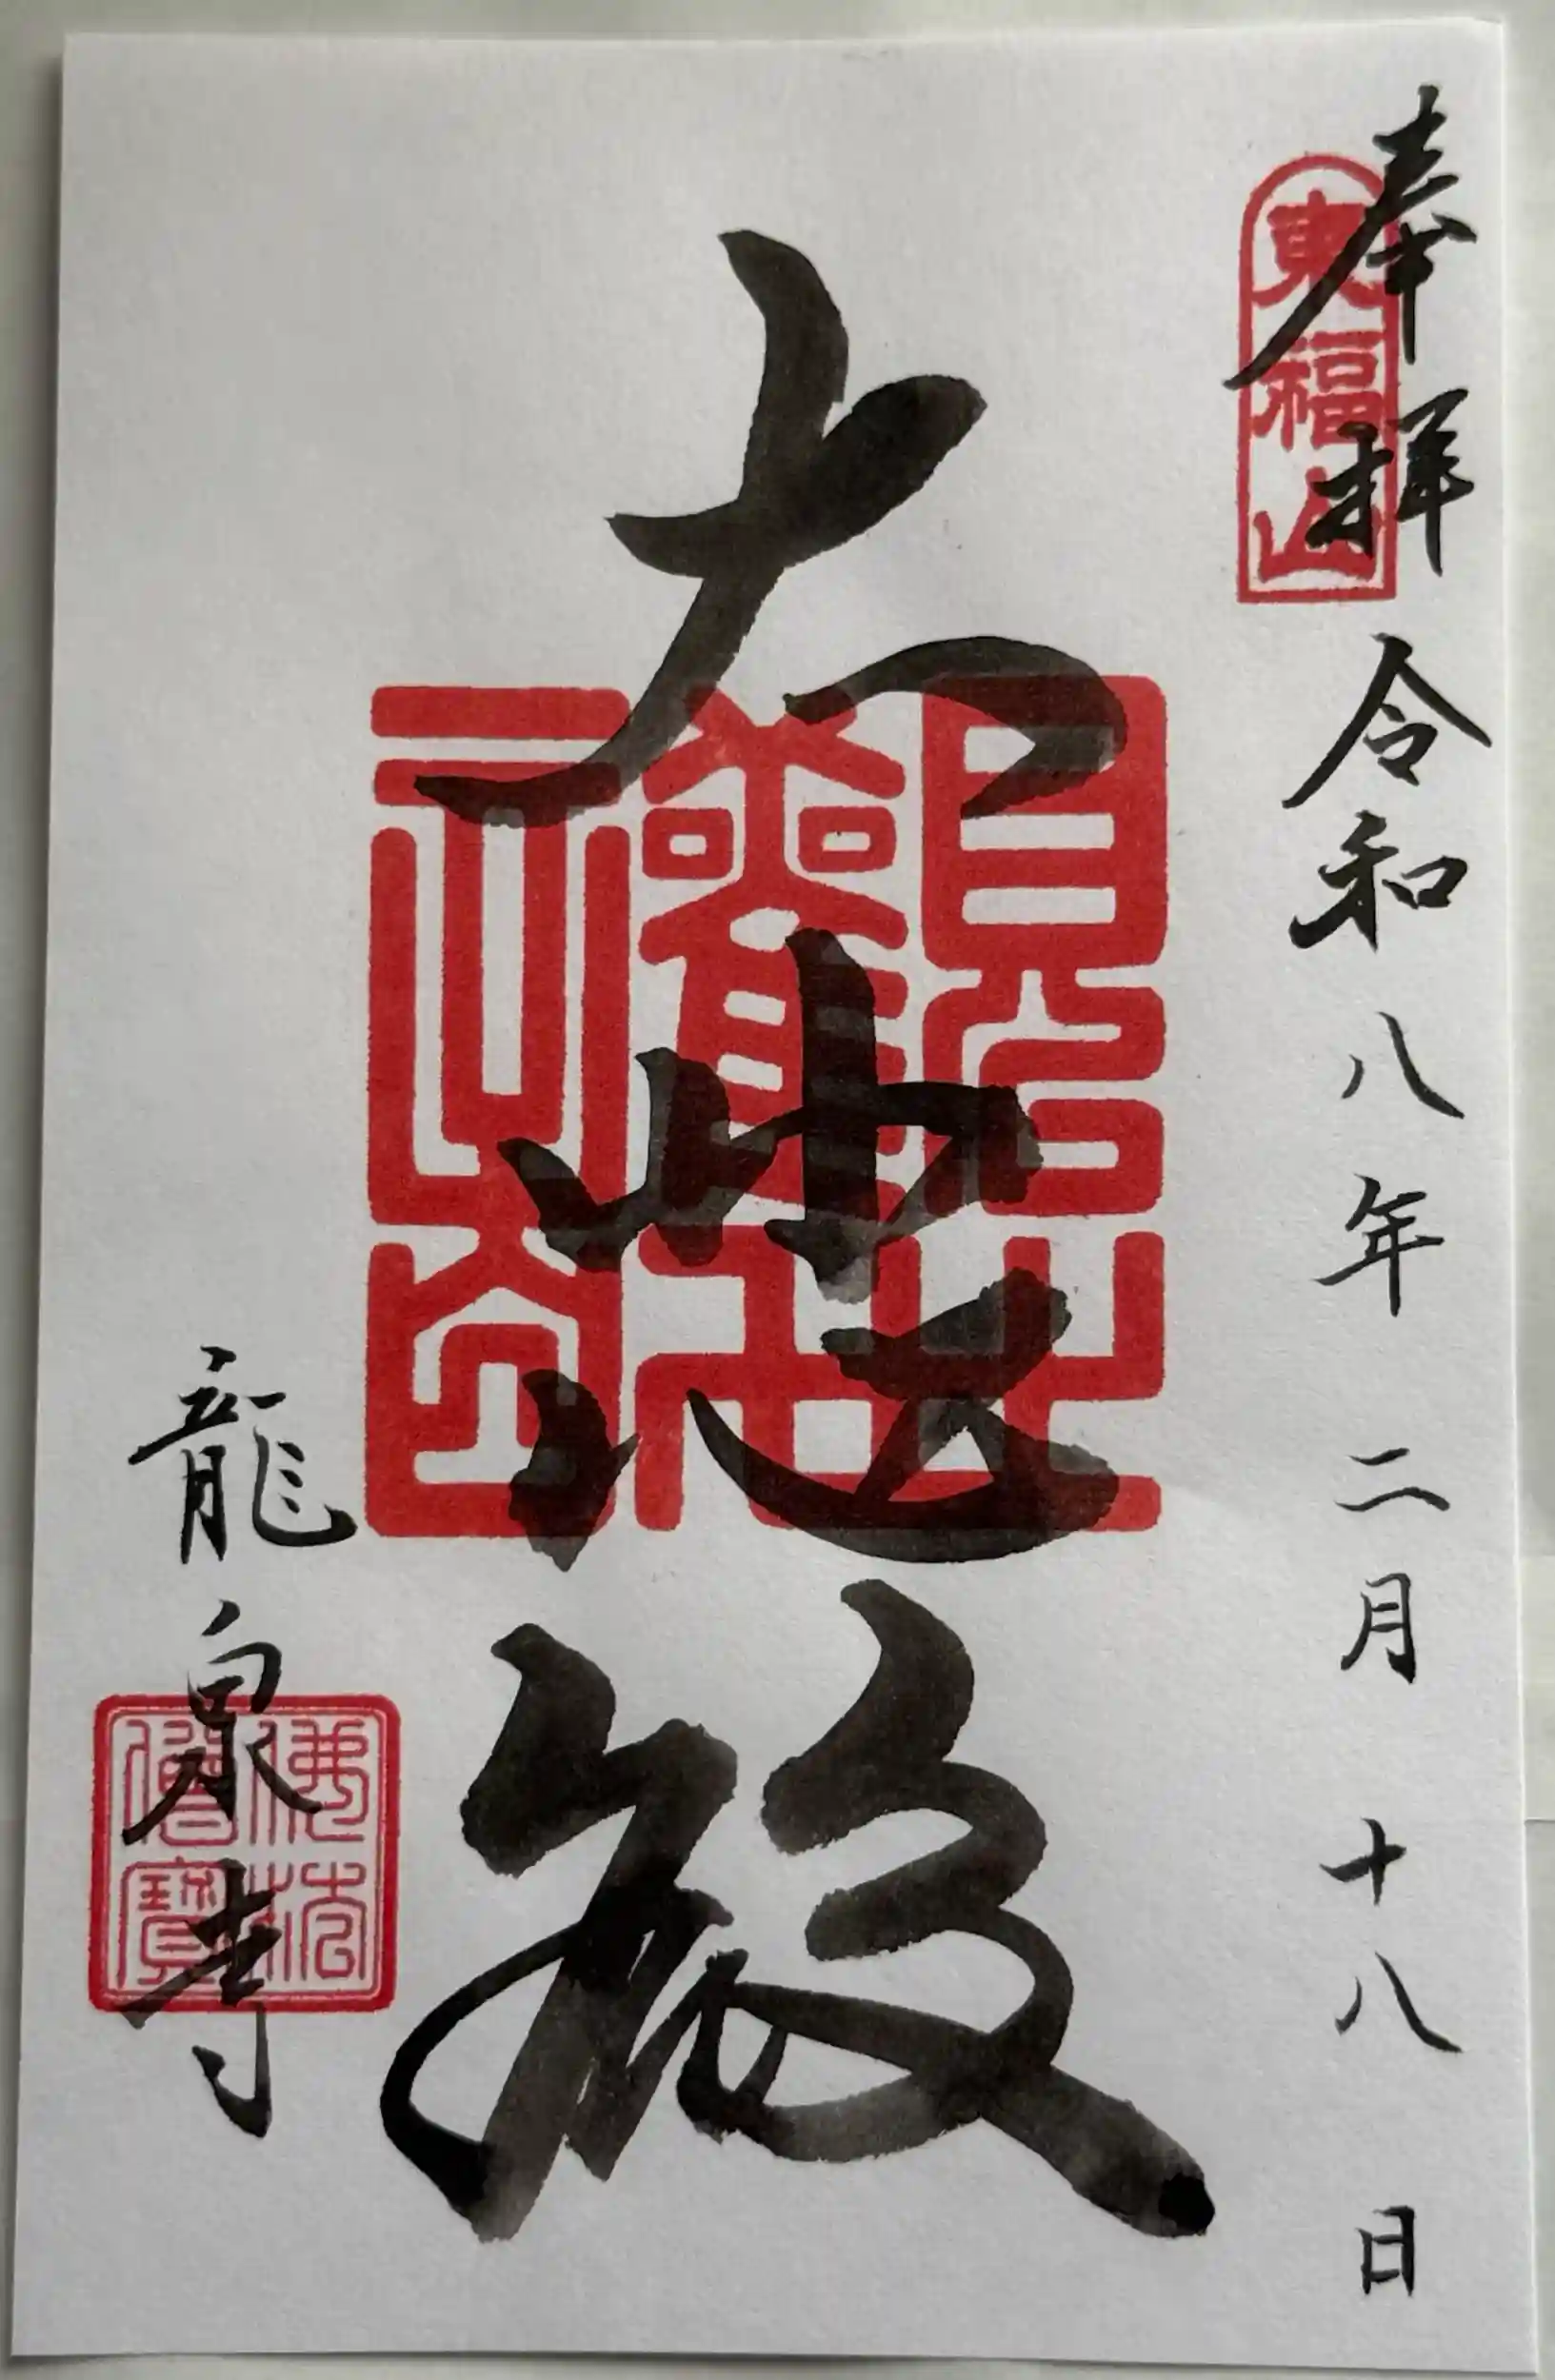 奉拝 令和八年二月十八日
東福山
大悲殿
龍泉寺
佛法僧寶